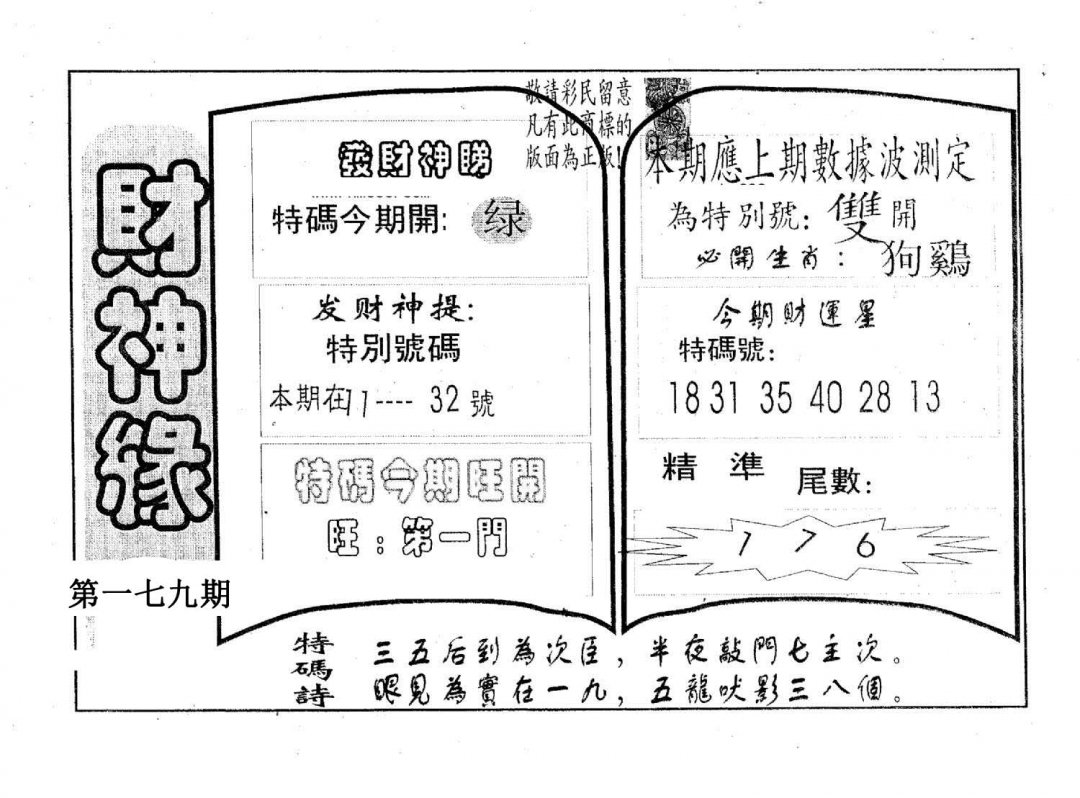 財神緣
第一七九期
敬請彩民留意
凡有此商標的
版面為正版!
發財神睇
特碼今期開: 绿
发财神提:
特別號碼
本期在11---- 32號
特碼今期旺開
旺:第一門
本期應上期數據波測定
為特別號: 雙開
必開生肖: 狗鷄
今期財運星
特碼號:
18 31 35 40 28 13
精準 尾數:
1 7 6
特碼詩
三五后到為次臣,半夜敲門七主次。
眼見為實在一九,五龍吠影三八個。